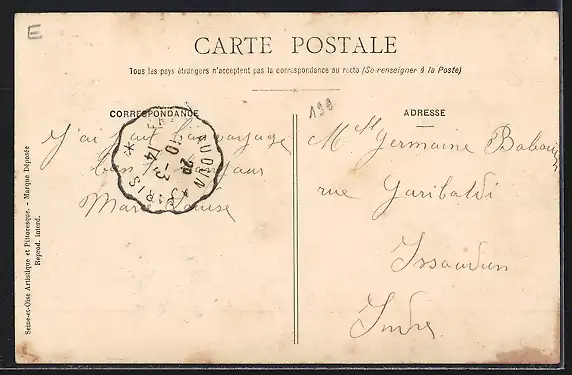 E
CARTE POSTALE
Tous les pays étrangers n'acceptent pas la correspondance au recto (Se renseigner à la Poste)
199
CORRESPONDANCE
J'ai fait bon voyage
bon
Marie Louise
AUDUN
PARIS
20
10 -3
14
ADRESSE
Melle Germaine
rue Garibaldi
Issoudun
Indre
Seine-et-Oise Artistique et Pittoresque. - Marque Déposée
Reprod. interd.